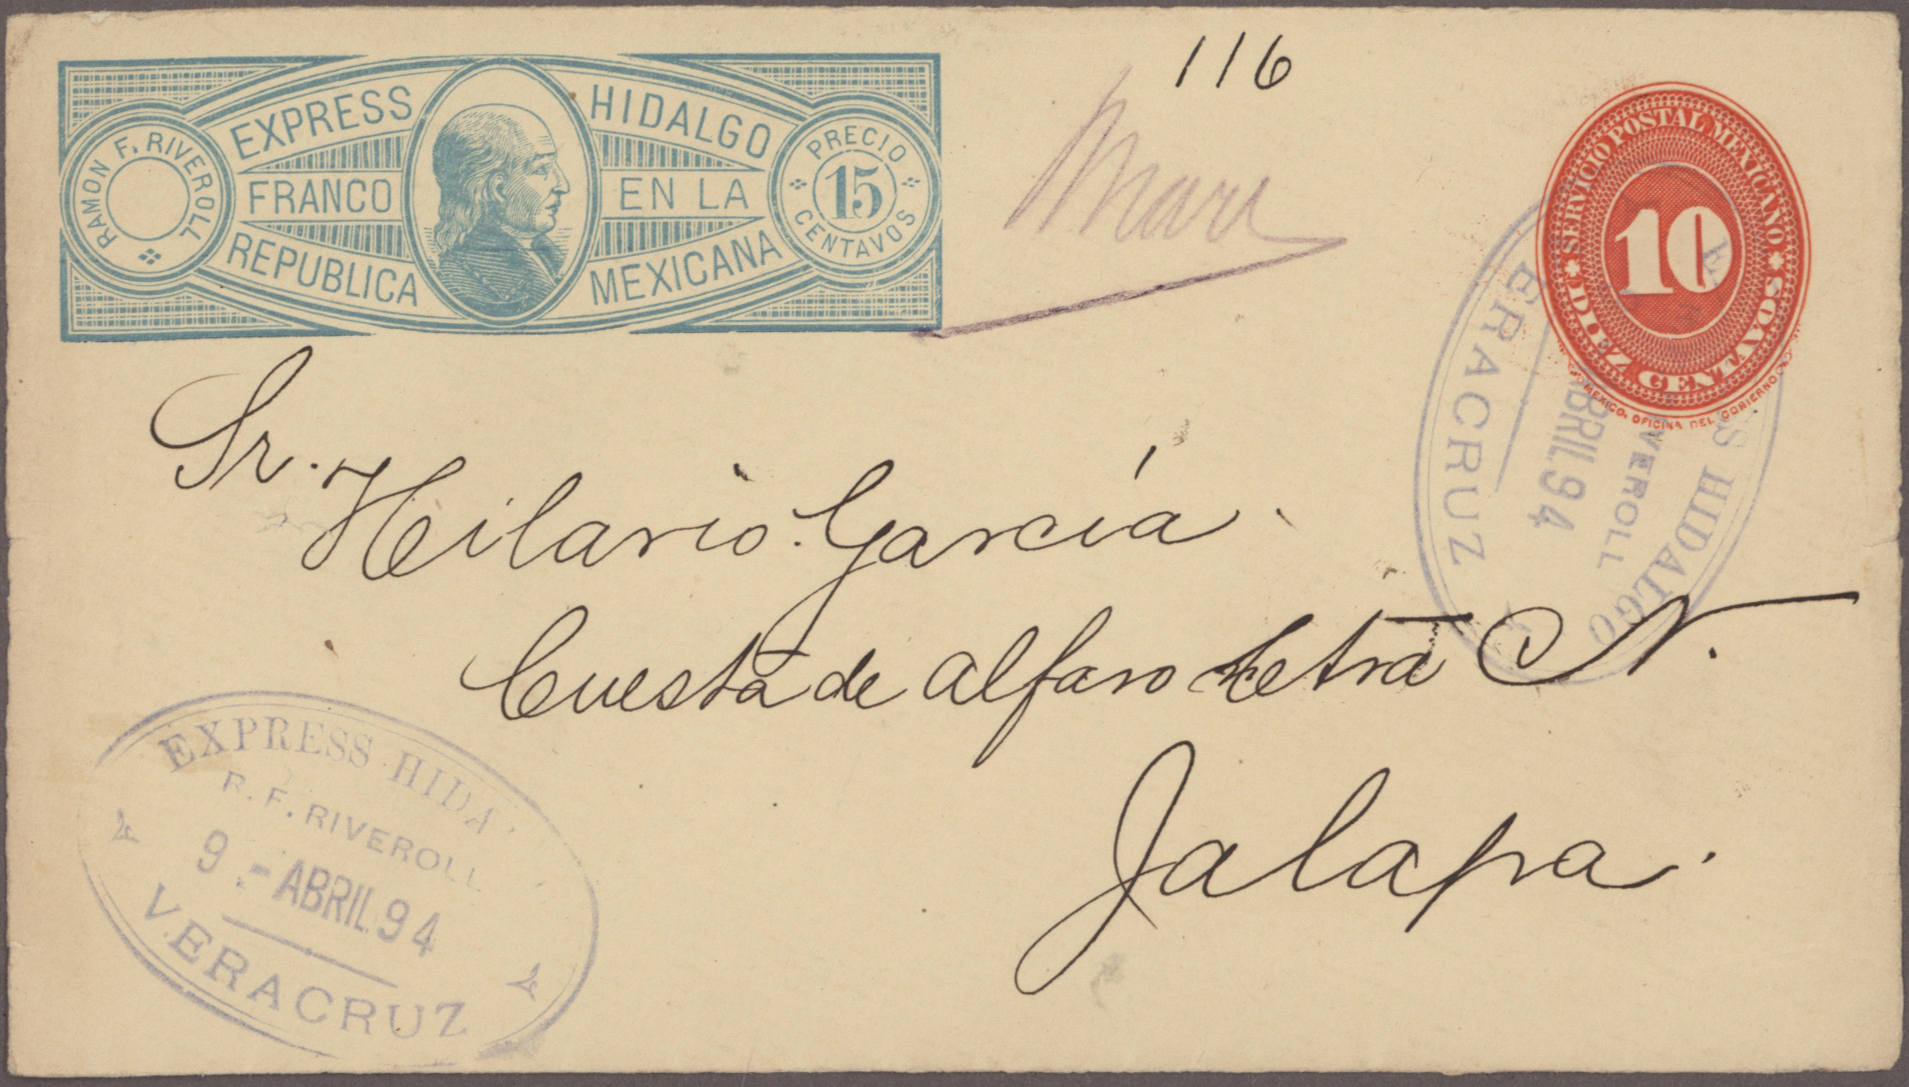 RAMON F. RIVEROLL
EXPRESS HIDALGO
FRANCO EN LA
REPUBLICA MEXICANA
PRECIO
15
CENTAVOS
116
SERVICIO POSTAL MEXICANO
10
DIEZ CENTAVOS
MEXICO, OFICINA DEL GOBIERNO
S HIDALGO
VEROLL
ABRIL 94
ERACRUZ
Sr. Hilario García.
Cuesta de Alfaro Letra N.
Jalapa.
EXPRESS HIDA
R. F. RIVEROLL
9 - ABRIL 94
VERACRUZ